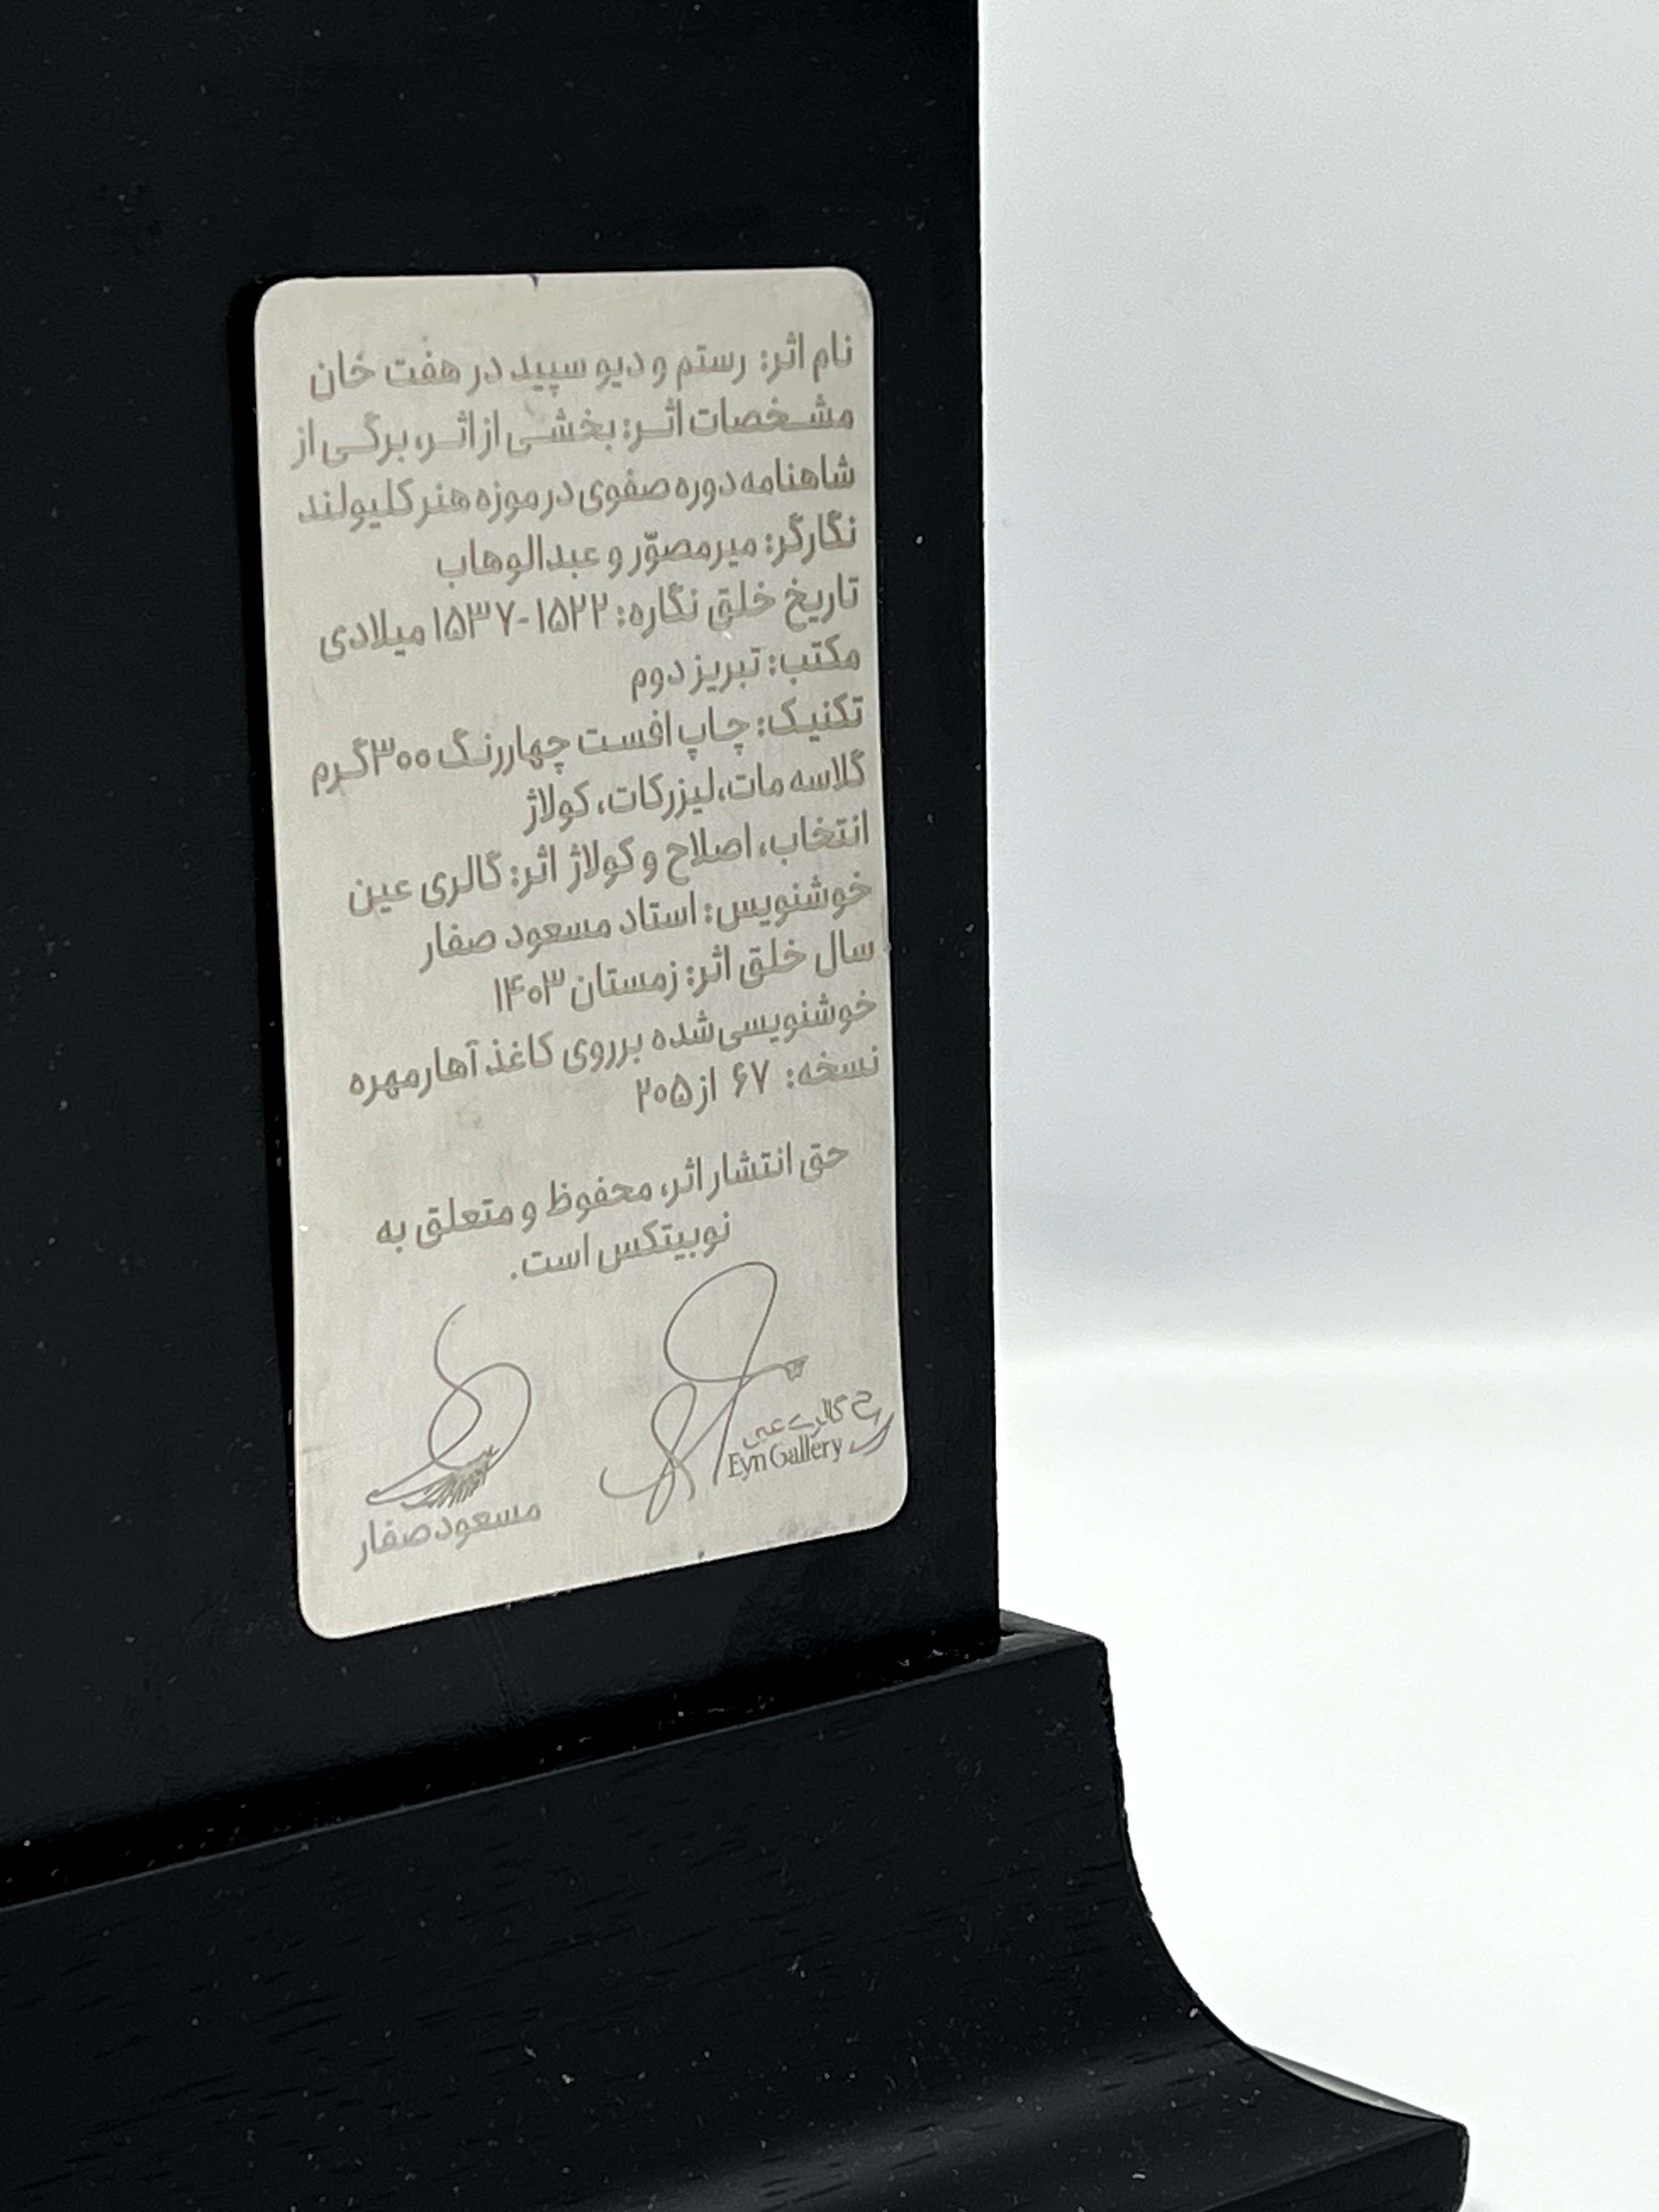 نام اثر: رستم و دیو سپید در هفت خان
مشخصات اثر: بخشی از اثر، برگی از
شاهنامه دوره صفوی در موزه هنر کلیولند
نگارگر: میرمصوّر و عبدالوهاب
تاریخ خلق نگاره: ۱۵۲۲-۱۵۳۷ میلادی
مکتب: تبریز دوم
تکنیک: چاپ افست چهاررنگ ۳۰۰گرم
گلاسه مات، لیزرکات، کولاژ
انتخاب، اصلاح و کولاژ اثر: گالری عین
خوشنویس: استاد مسعود صفار
سال خلق اثر: زمستان ۱۴۰۳
خوشنویسی شده برروی کاغذ آهارمهره
نسخه: ۶۷ از ۲۰۵
حق انتشار اثر، محفوظ و متعلق به
نوبیتکس است.
گالری عین
Eyn Gallery
مسعود صفار